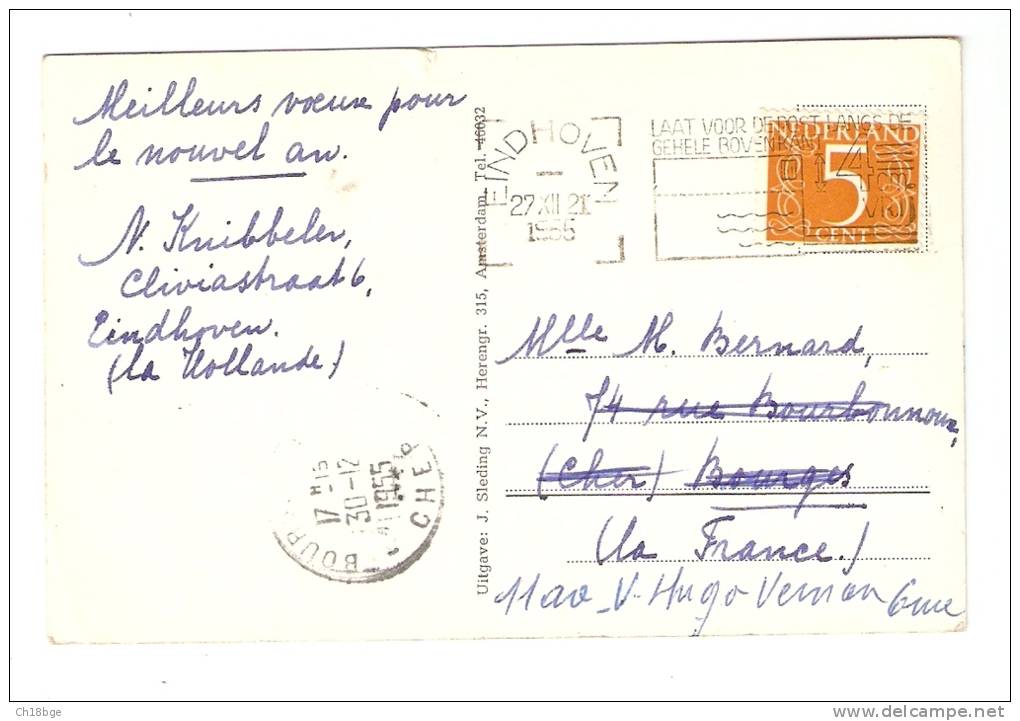 Meilleurs vœux pour
le nouvel an.
N. Knibbeler,
Cliviastraat 6,
Eindhoven.
(la Hollande)
BOUR
17 H 15
30-12
1955
CHER
Uitgave: J. Sleding N.V., Herengr. 315, Amsterdam, Tel. 46032
EINDHOVEN
27 XII 21
1955
LAAT VOOR DE POST LANGS DE
GEHELE BOVENKANT
4
VRIJ
NEDERLAND
5
CENT
Mlle M. Bernard,
74 rue Bourbonnoux,
(Cher) Bourges
(la France.)
11 av - V. Hugo Vernon
Ch18bge
www.delcampe.net